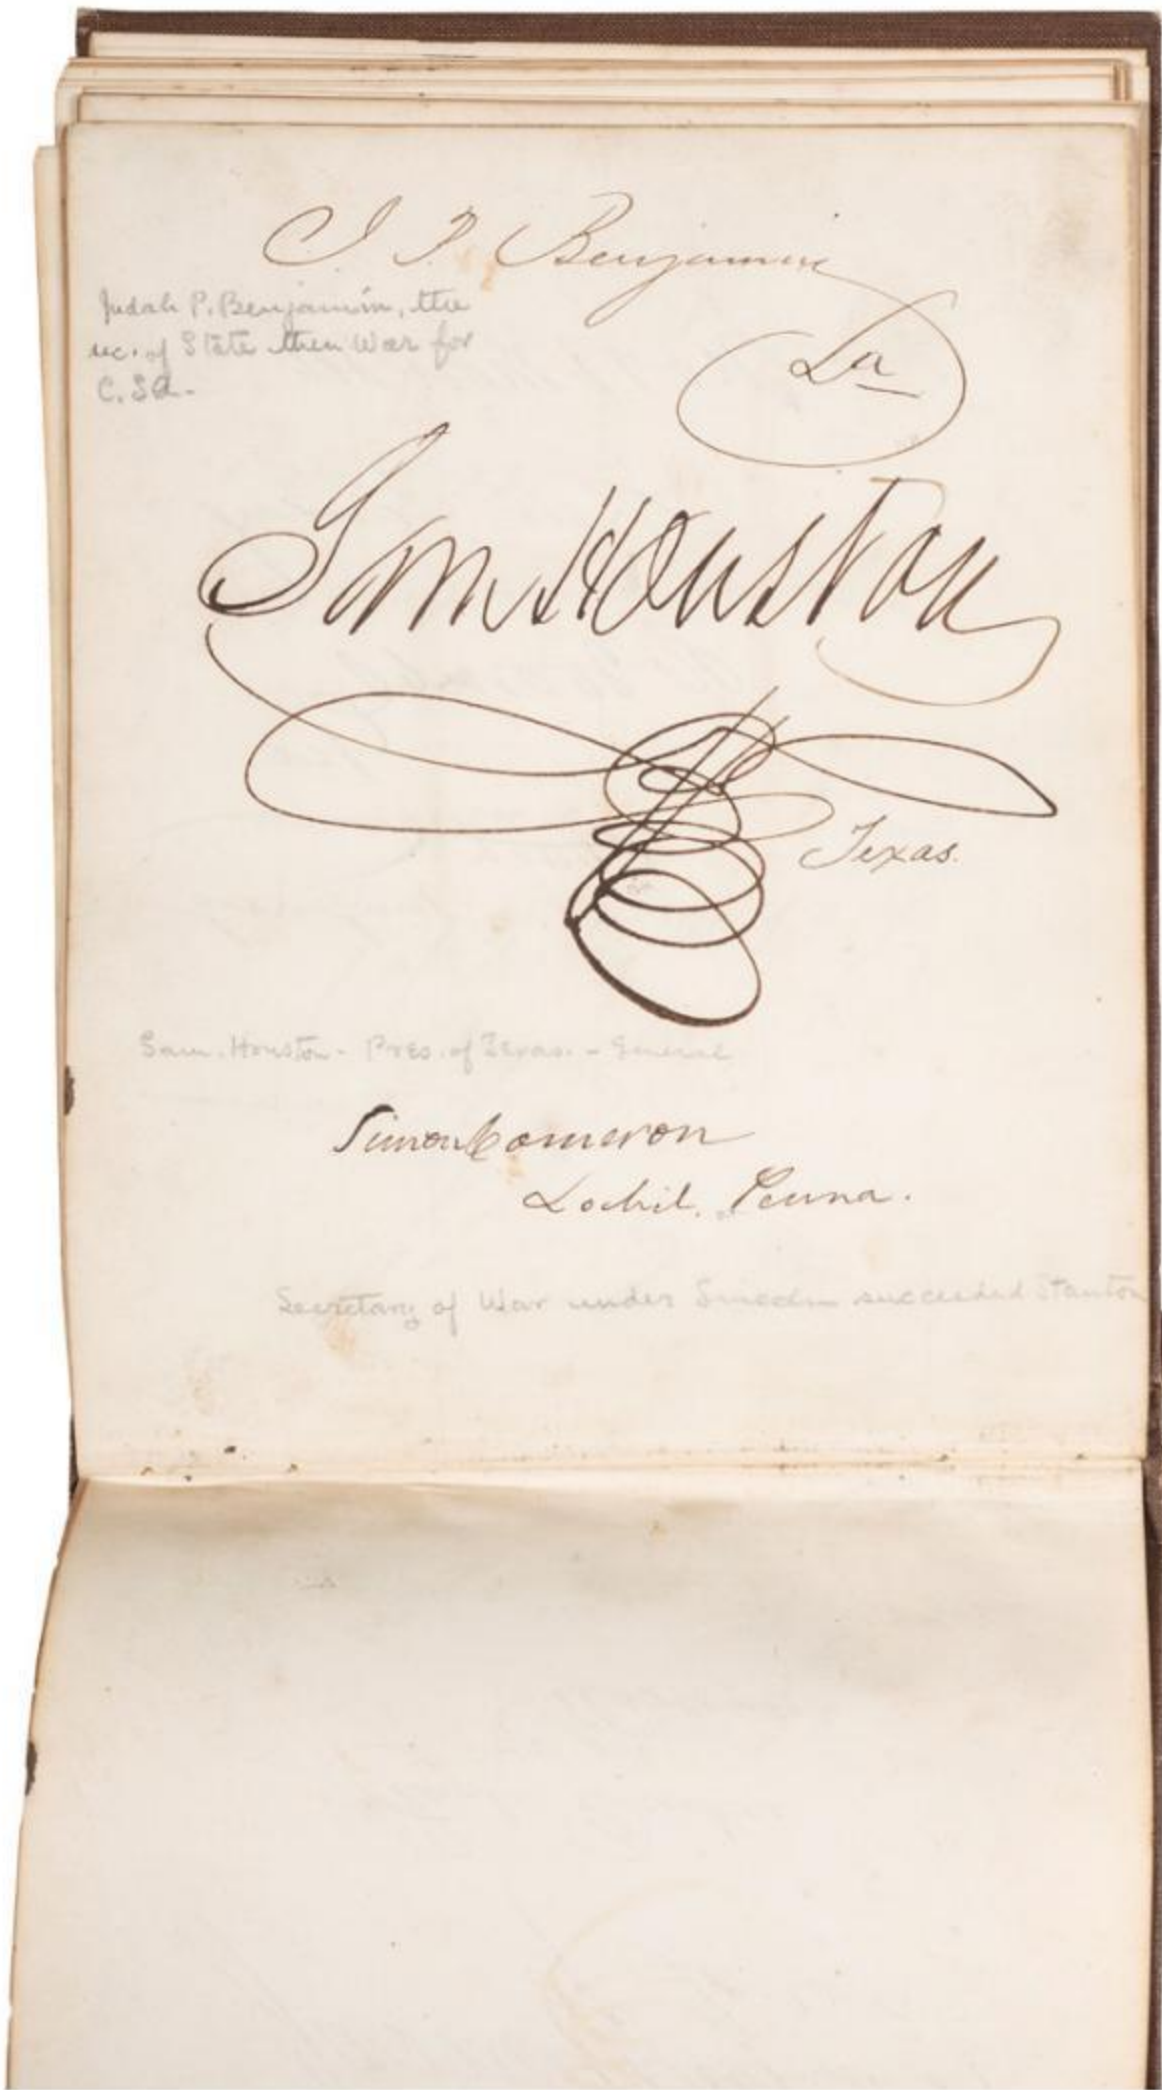 J. P. Benjamin
La
Judah P. Benjamin, the
sec. of State then War for
C. S A -
Sam Houston
Texas.
Sam. Houston - Pres. of Texas. - General
Simon Cameron
Lochiel, Penna.
Secretary of War under Lincoln succeeded Stanton